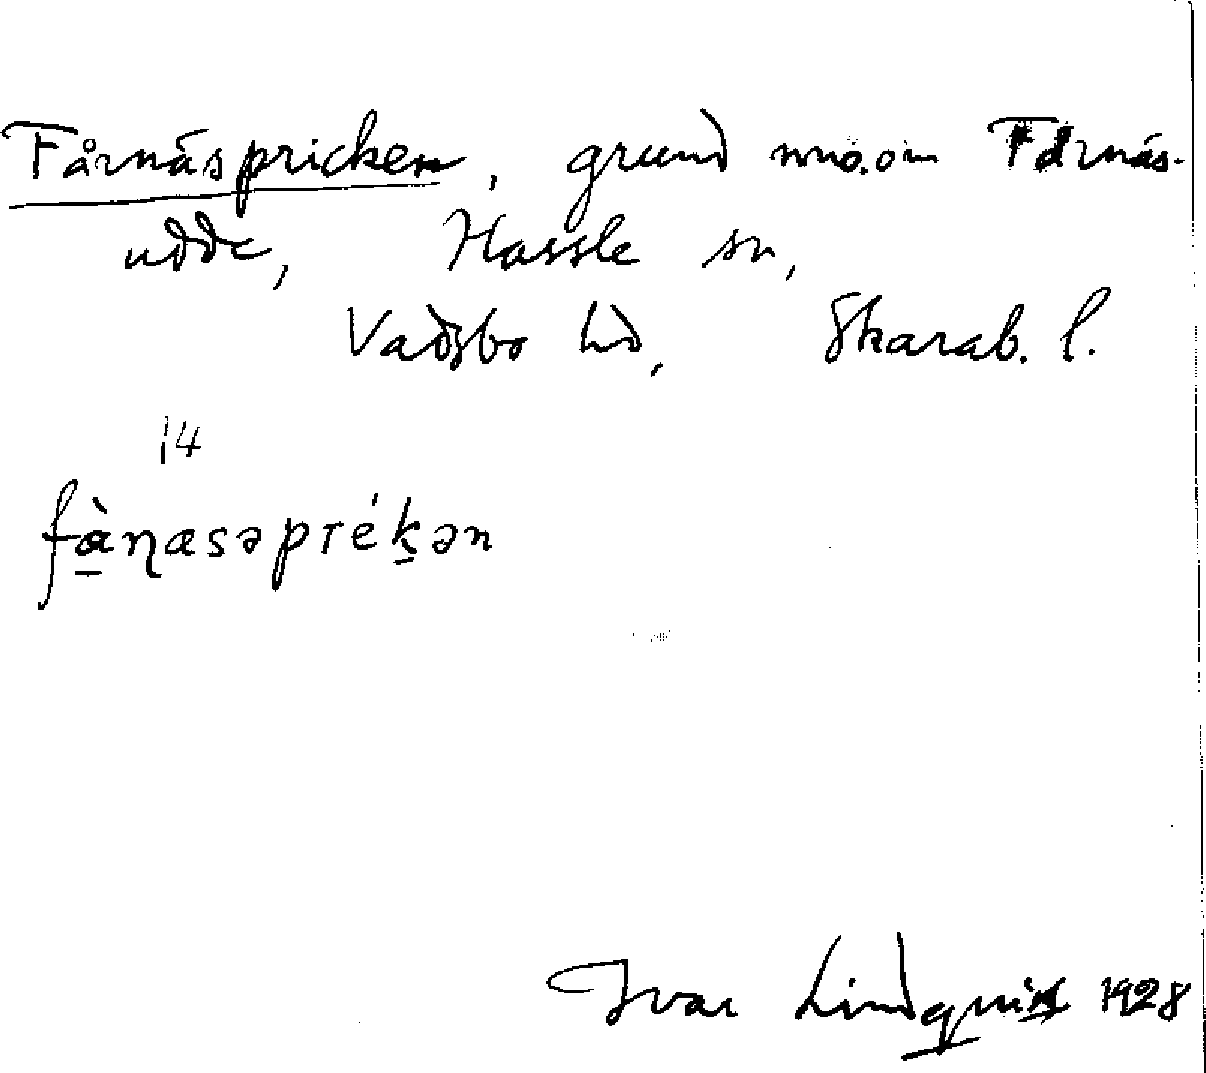 Fårnäspricken, grund nno.om Fårnäs-
udde, Hassle sn,
Vadsbo hd, Skarab. l.
14
fàɳasəprékən
Ivar Lindquist 1928